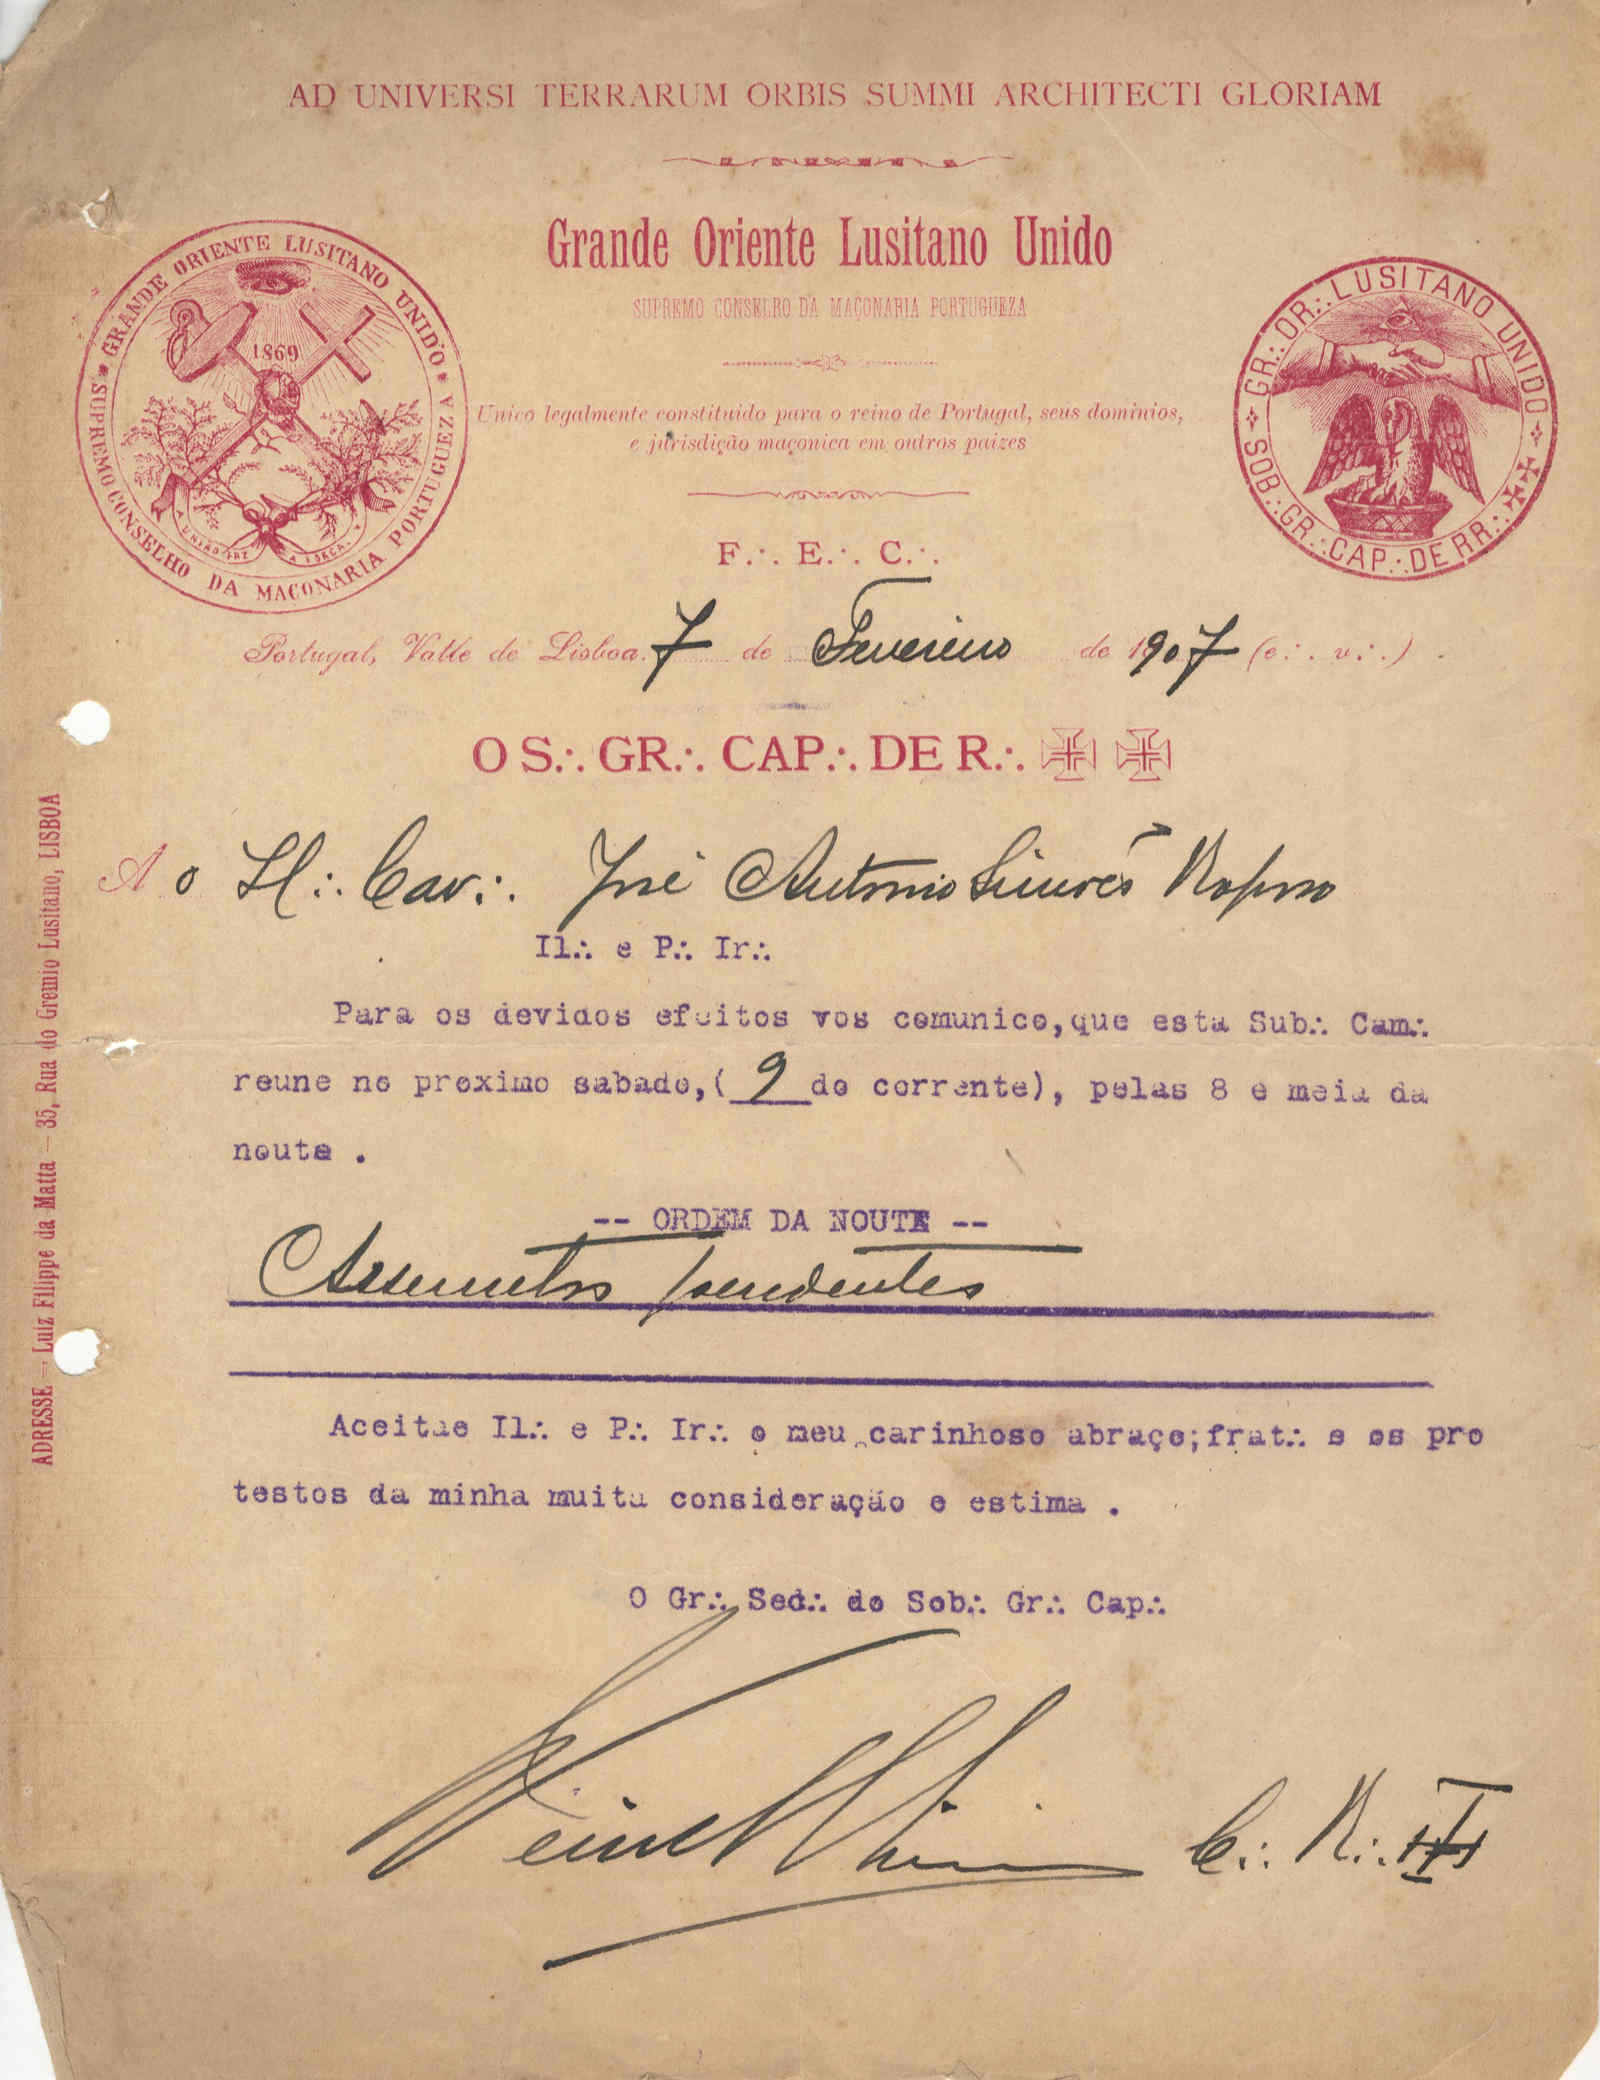 AD UNIVERSI TERRARUM ORBIS SUMMI ARCHITECTI GLORIAM
Grande Oriente Lusitano Unido
SUPREMO CONSELHO DA MAÇONARIA PORTUGUEZA
GRANDE ORIENTE LUSITANO UNIDO
SUPREMO CONSELHO DA MAÇONARIA PORTUGUEZA
1869
A UNIÃO FAZ A FORÇA
GR∴ OR∴ LUSITANO UNIDO
SOB∴ GR∴ CAP∴ DE RR∴ ✠✠
Unico legalmente constituido para o reino de Portugal, seus dominios,
e jurisdição maçonica em outros paizes
F∴ E∴ C∴
Portugal, Valle de Lisboa 7 de Fevereiro de 1907 (e∴ v∴)
O S∴ GR∴ CAP∴ DE R∴ ✠ ✠
Ao Il∴ Cav∴ José Antonio Simões Raposo
Il∴ e P∴ Ir∴
Para os devidos efeitos vos comunico,que esta Sub∴ Cam∴
reune no proximo sabado,( 9 do corrente), pelas 8 e meia da
noute .
-- ORDEM DA NOUTE --
Assumptos pendentes
Aceitae Il∴ e P∴ Ir∴ o meu carinhoso abraço;frat∴ e os pro
testos da minha muita consideração e estima .
O Gr∴ Sed∴ do Sob∴ Gr∴ Cap∴
C∴ R∴
ADRESSE — Luiz Filippe da Matta — 35, Rua do Gremio Lusitano, LISBOA